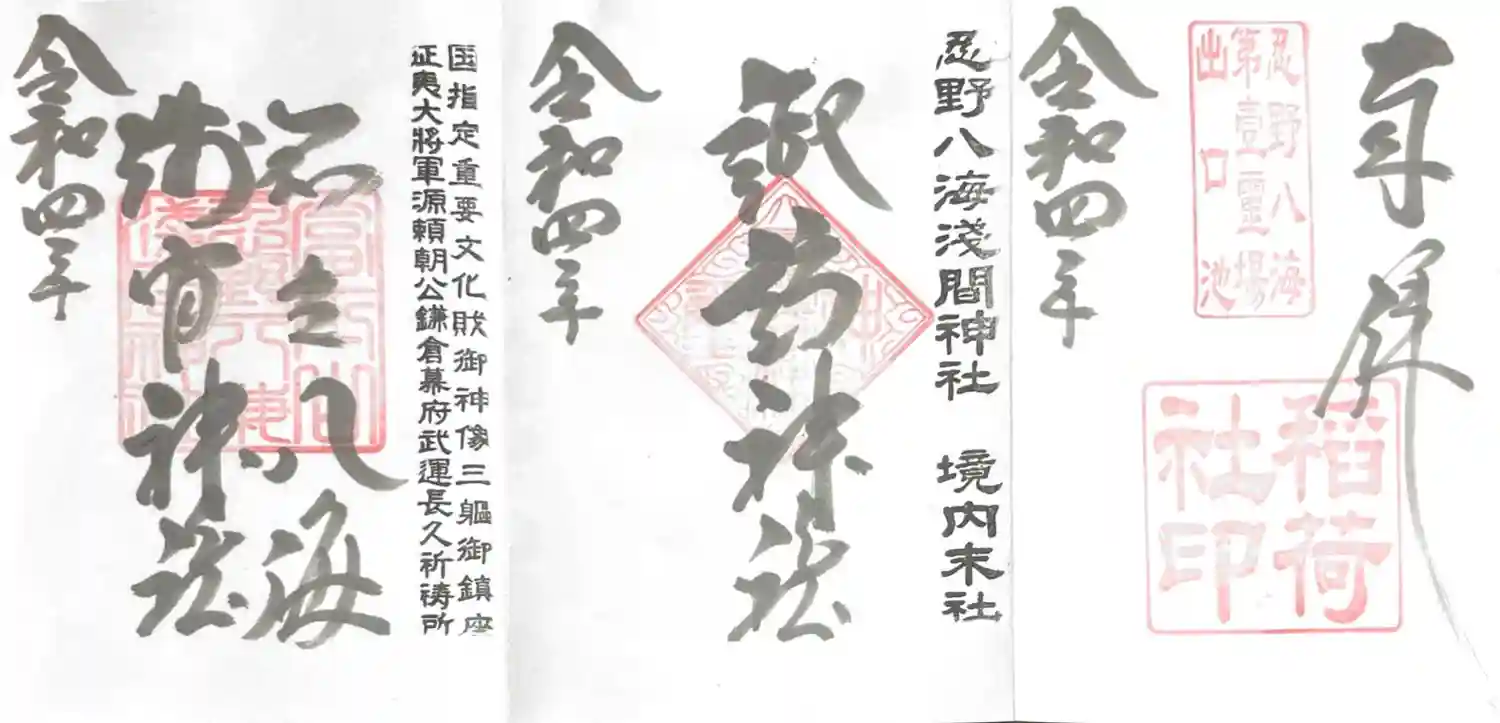 奉拝
忍野八海
第壹霊場
出口池
稲荷
社印
令和四年
忍野八海淺間神社 境内末社
諏訪神社
令和四年
国指定重要文化財御神像三軀御鎮座
征夷大將軍源頼朝公鎌倉幕府武運長久祈祷所
忍野八海
浅間神社
令和四年